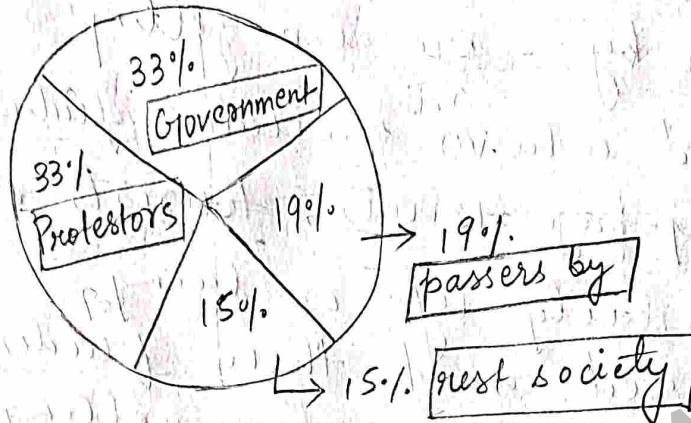 33%
Government
33%
Protestors
19%
→ 19%
passers by
15%
→ 15% rest society